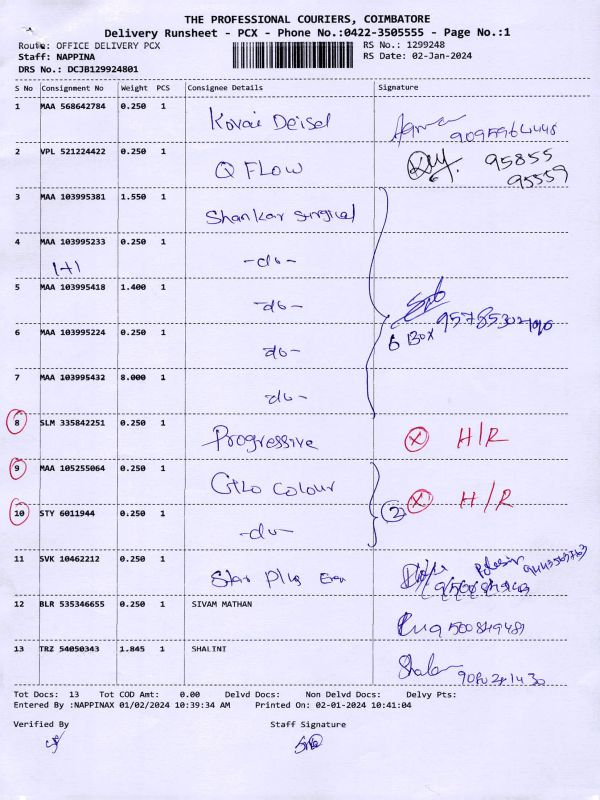 THE PROFESSIONAL COURIERS, COIMBATORE
Delivery Runsheet - PCX - Phone No.:0422-3505555 - Page No.:1
Route: OFFICE DELIVERY PCX RS No.: 1299248
Staff: NAPPINA RS Date: 02-Jan-2024
DRS No.: DCJB129924801
S No Consignment No Weight PCS Consignee Details Signature
1 MAA 568642784 0.250 1 Kovai Deisel
2 VPL 521224422 0.250 1 Q FLOW 95855
95559
3 MAA 103995381 1.550 1 Shankar surgical
4 MAA 103995233 0.250 1 -do-
1+1
5 MAA 103995418 1.400 1 -do-
6 MAA 103995224 0.250 1 -do- 6 Box
7 MAA 103995432 8.000 1 -do-
8 SLM 335842251 0.250 1 Progressive X H/R
9 MAA 105255064 0.250 1 Colour
10 STY 6011944 0.250 1 -do- 2 X H/R
11 SVK 10462212 0.250 1 Star Plus
12 BLR 535346655 0.250 1 SIVAM MATHAN
13 TRZ 54050343 1.845 1 SHALINI
Tot Docs: 13 Tot COD Amt: 0.00 Delvd Docs: Non Delvd Docs: Delvy Pts:
Entered By :NAPPINAX 01/02/2024 10:39:34 AM Printed On: 02-01-2024 10:41:04
Verified By Staff Signature